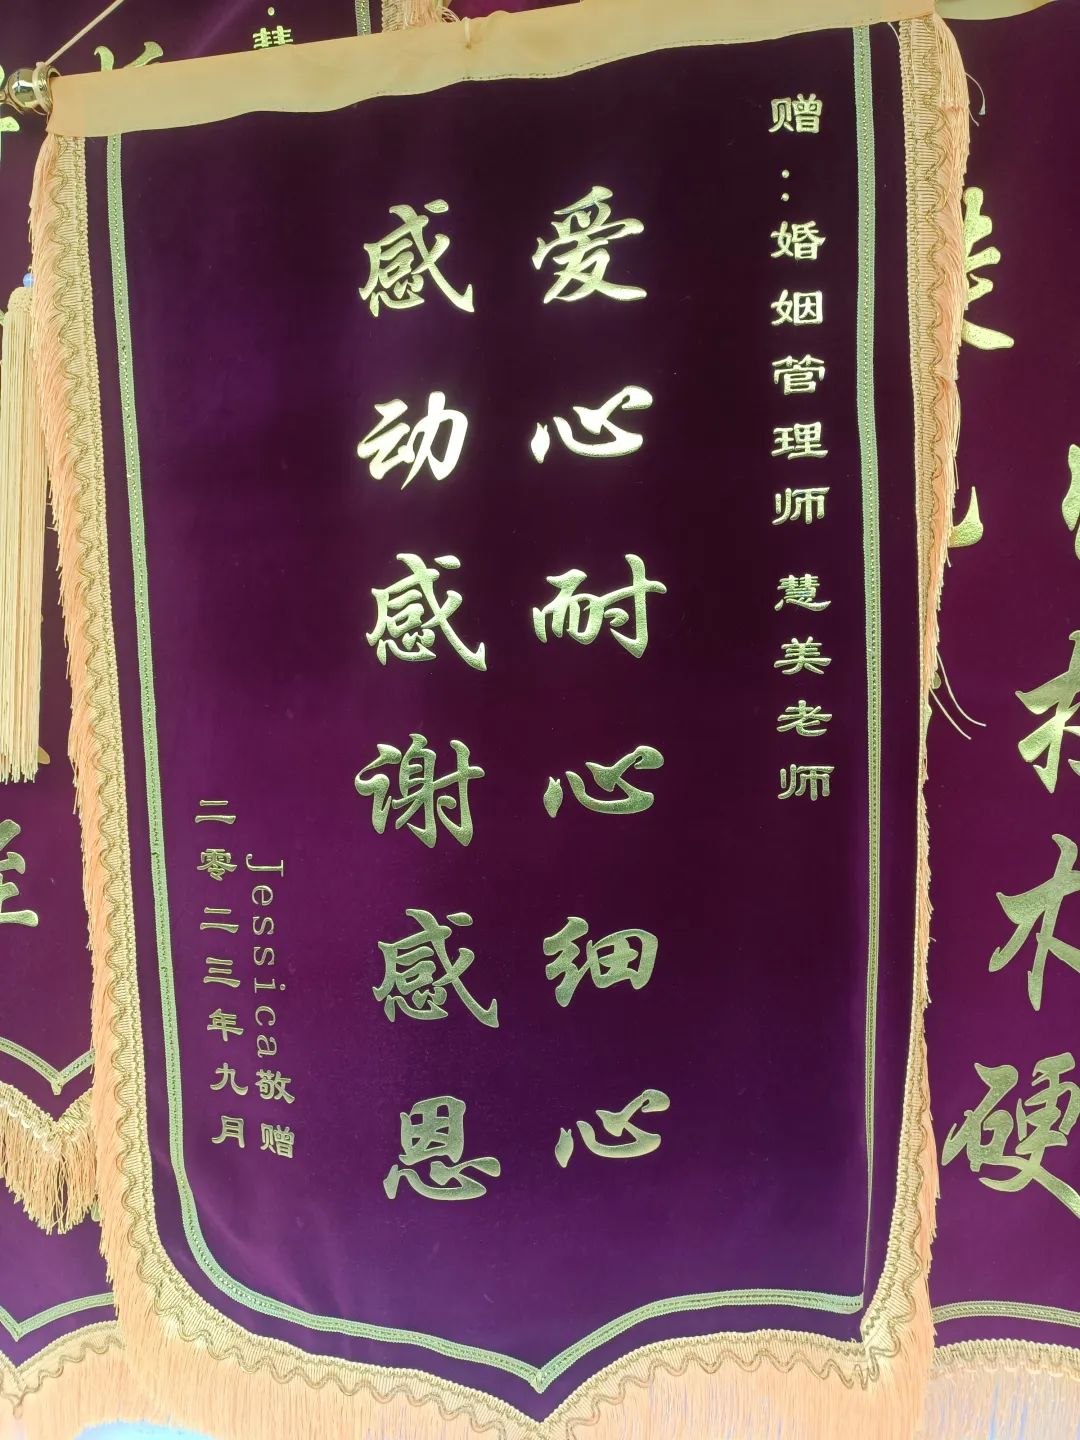 赠：婚姻管理师 慧美老师
爱心耐心细心
感动感谢感恩
Jessica敬赠
二零二三年九月
硬